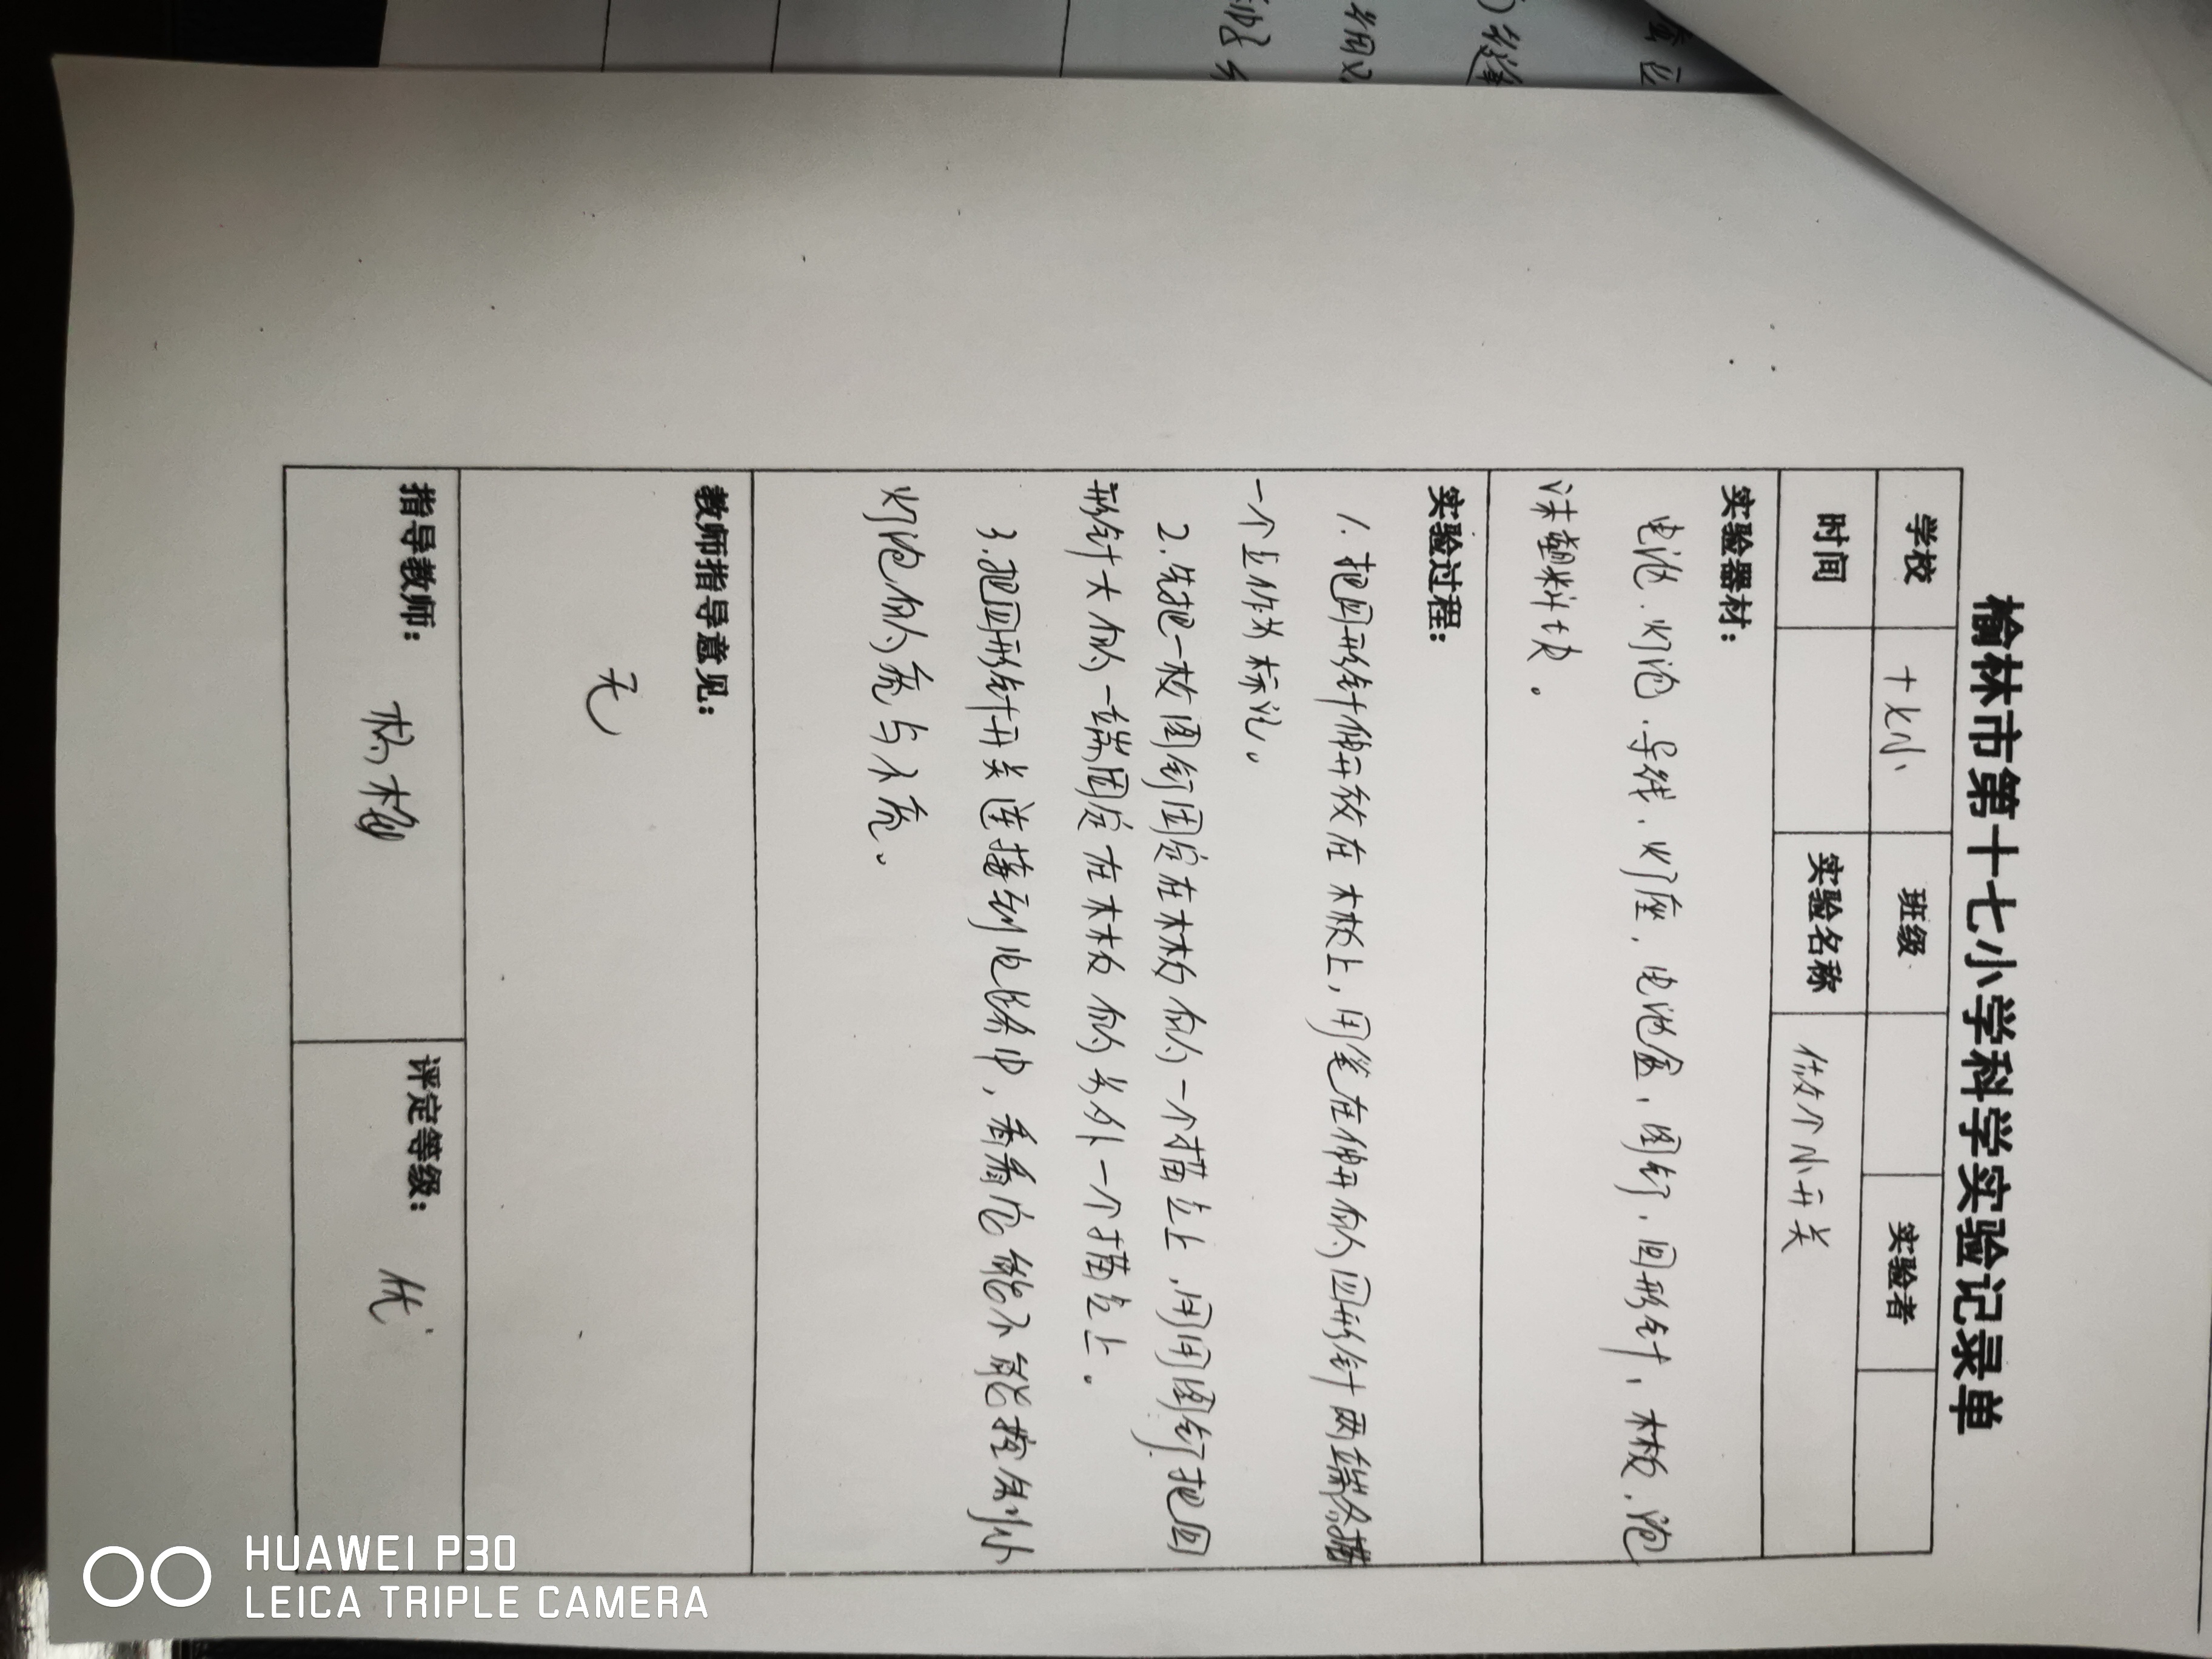 榆林市第十七小学科学实验记录单
学校 十七小 班级 实验者
时间 实验名称 做个小开关
实验器材：
电池．灯泡．导线．灯座，电池盒，图钉．回形针，木板．泡
沫塑料块。
实验过程：
1．把回形针伸开放在木板上，用笔在伸开的回形针两端各描
一个点作为标记。
2．先把一枚图钉固定在木板的一个描点上，用图钉把回
形针大的一端固定在木板的另外一个描点上。
3．把回形针开关连接到电路中，看看它能不能控制小
灯泡的亮与不亮。
教师指导意见：
无
指导教师： 评定等级： 优
HUAWEI P30
LEICA TRIPLE CAMERA